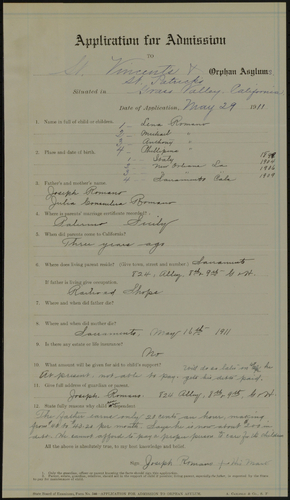 Application for Admission
TO
St. Vincents &
St. Patricks Orphan Asylum
Situated in Grass Valley, California
Date of Application, May 29 1911
1. Name in full of child or children. 1 – Lena Romano
2 –
3 – Anthony "
4 – Phillipina "
2. Place and date of birth. 1 – Italy
2 – New Orleans La 1906
3 –
4 – Sacramento Cala 1909
3. Father's and mother's name.
Joseph Romano
Julia Romano
4. Where is parents' marriage certificate recorded?
Palermo Sicily
5. When did parents come to California?
Three years ago
6. Where does living parent reside? (Give town, street and number) Sacramento
824 Alley, 8th 9th G & H.
If father is living give occupation.
Railroad Shops
7. Where and when did father die?
8. Where and when did mother die?
Sacramento, May 16th 1911
9. Is there any estate or life insurance?
No
10. What amount will be given for aid to child's support?
At present not able to pay. debts paid.
11. Give full address of guardian or parent.
Joseph Romano. 824 Alley, 8th 9th, G & H.
12. State fully reasons why child is dependent
The father earns only 21 cents an hour making
from 40 to 45 per month. Says he is now about 200 in
debt. He cannot afford to pay a proper person to care for the children
All the above is absolutely true, to my best knowledge and belief.
Sig. Joseph Romano